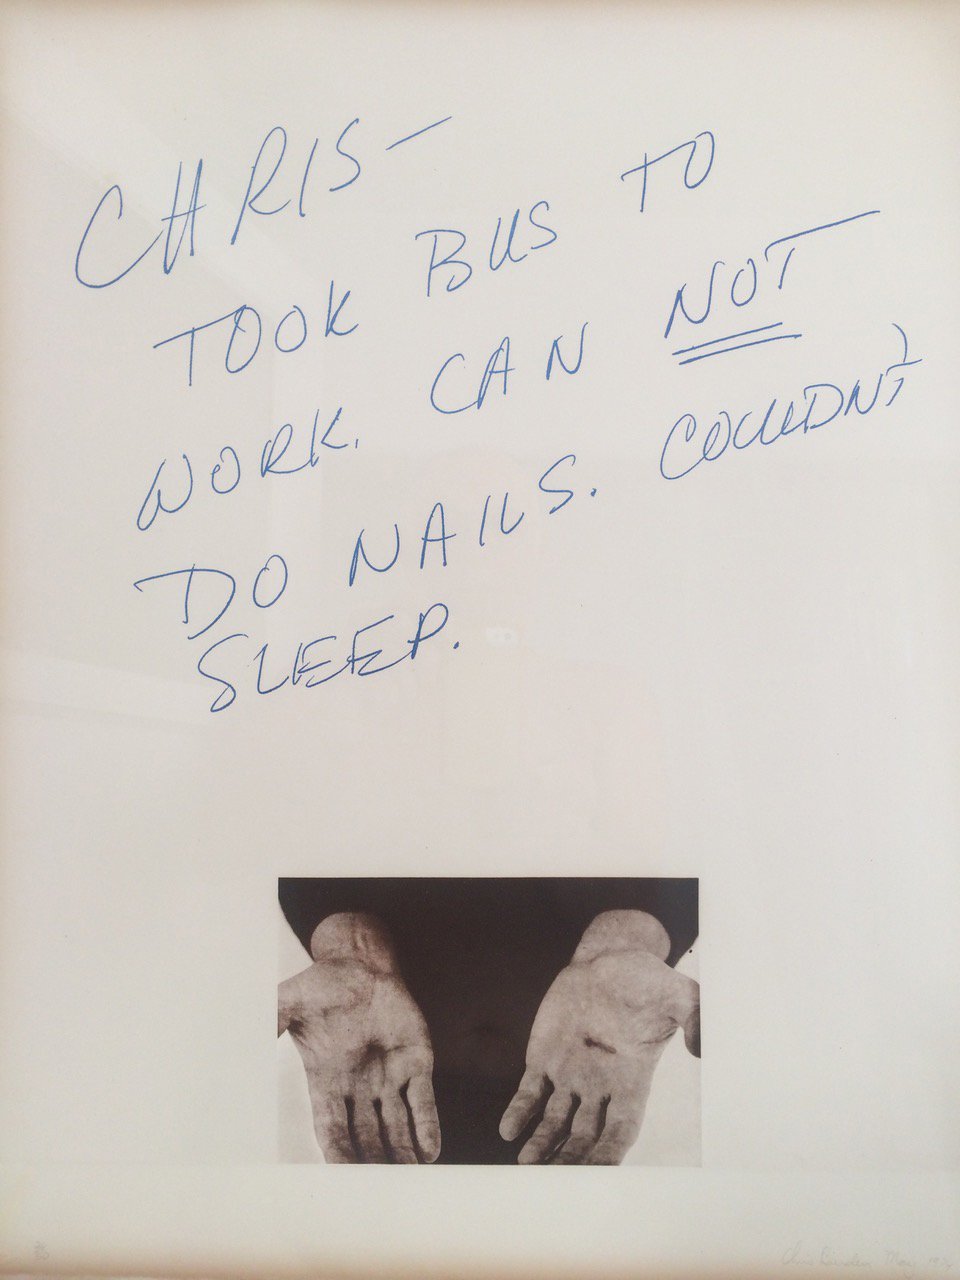 CHRIS—
TOOK BUS TO
WORK. CAN NOT
DO NAILS. COULDN'T
SLEEP.
Chris Burden May